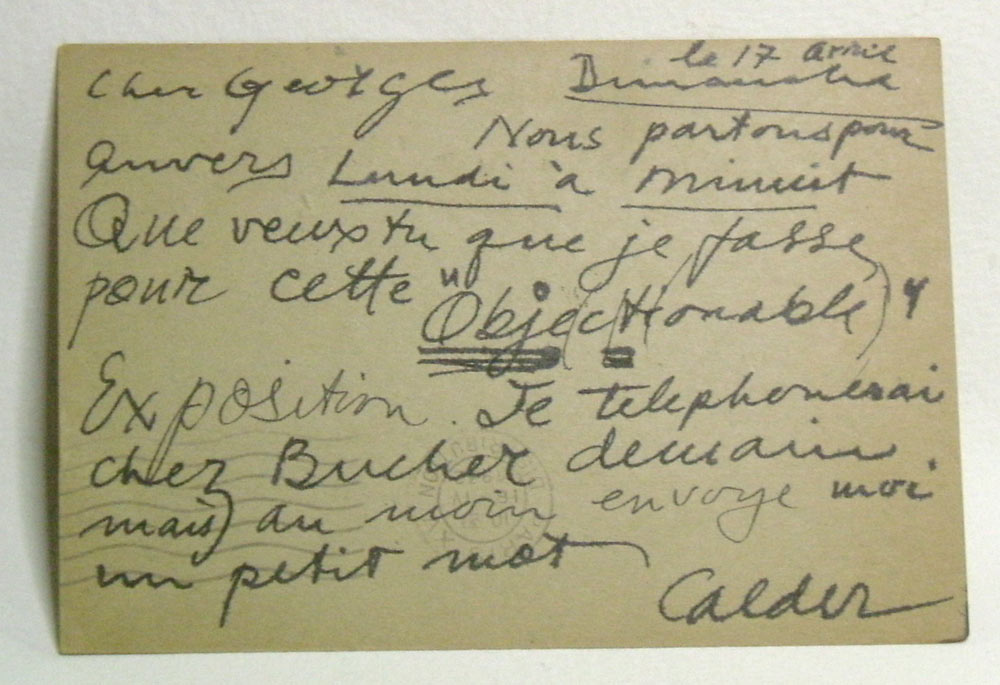 le 17 avril
Cher Georges Dimanche
Nous partons pour
Anvers Lundi à minuit
Que veux tu que je fasse
pour cette "Objec(t)ionable)"
Exposition. Je telephonerai
chez Bucher demain
mais) au moin envoye moi
un petit mot
Calder